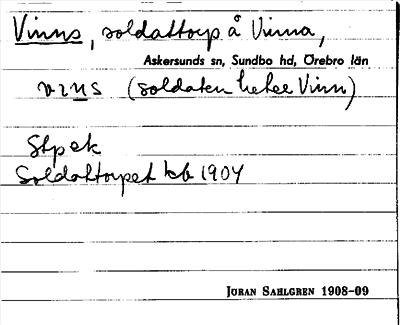 Vinns, soldattorp å Vinna,
Askersunds sn, Sundbo hd, Örebro län
vıns (soldaten hetee Vinn)
Stp ek
Soldattorpet kb 1904
JÖRAN SAHLGREN 1908-09